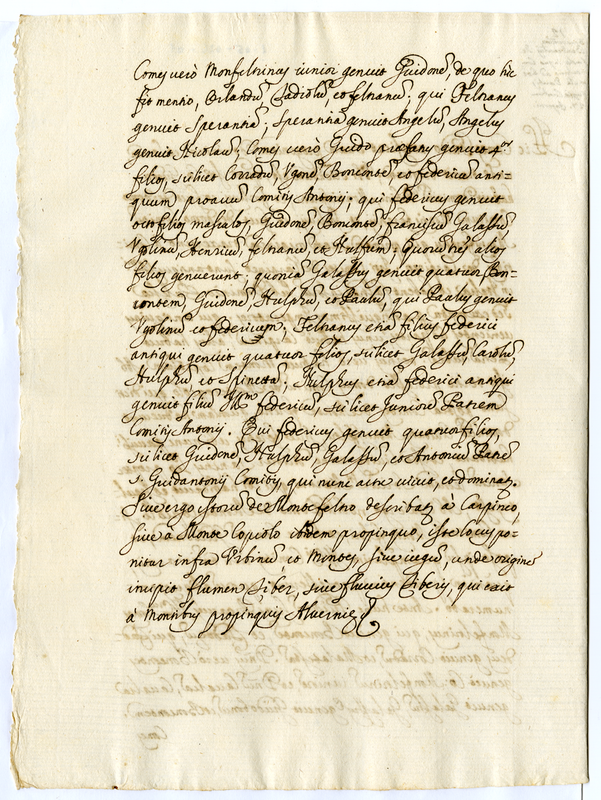 Comes verò Monfeltrinus iunior genuit Guidonē, de quo hic
fit mentio, Orlandū, Cadiolū, et feltranū, qui Feltranus
genuit Sperantiā, Sperantia genuit Angelū, Angelus
genuit Nicolaū; Comes verò Guido prefatus genuit 4.or
filios, scilicet Corradū, Vgonē, Boncontē, et federicū anti=
quum proavū Comitis Antonij; qui federicus genuit
octo filios masculos, Guidonē, Boncontē, Franciscū Galassū,
Vgolinū, Henricū, feltranū, et Nulfum; Quorū tres alios
filios genuerunt; quoniā Galassus genuit quatuor, Bon=
contem, Guidonē, Nulphū, et Paulū, qui Paulus genuit
Vgolinū et federicum; Feltranus etiā filius federici
antiqui genuit quatuor filios, scilicet Galassū, Carolū,
Nulphū, et Spinettā; Nulphus etiā federici antiqui
genuit filiū federicū, scilicet Juniorē Patrem
Comitis Antonij. Qui federicus genuit quatuor filios,
scilicet Guidonē, Nulphū Galassū, et Antoniū Patrē
s. Guidantonij Comitis, qui nunc actu vivit, et dominat.
Sive ergo istorū de Montefeltro describat à Carpineo,
sive a Monte Copiolo ibidem propinquo, iste locus po=
nitur infra Vrbinū, et Montes, sive iugū, unde origine
incipit flumen Tiber, sive fluvius Tiberis, qui exit
à Montibus propinquis Alvernie